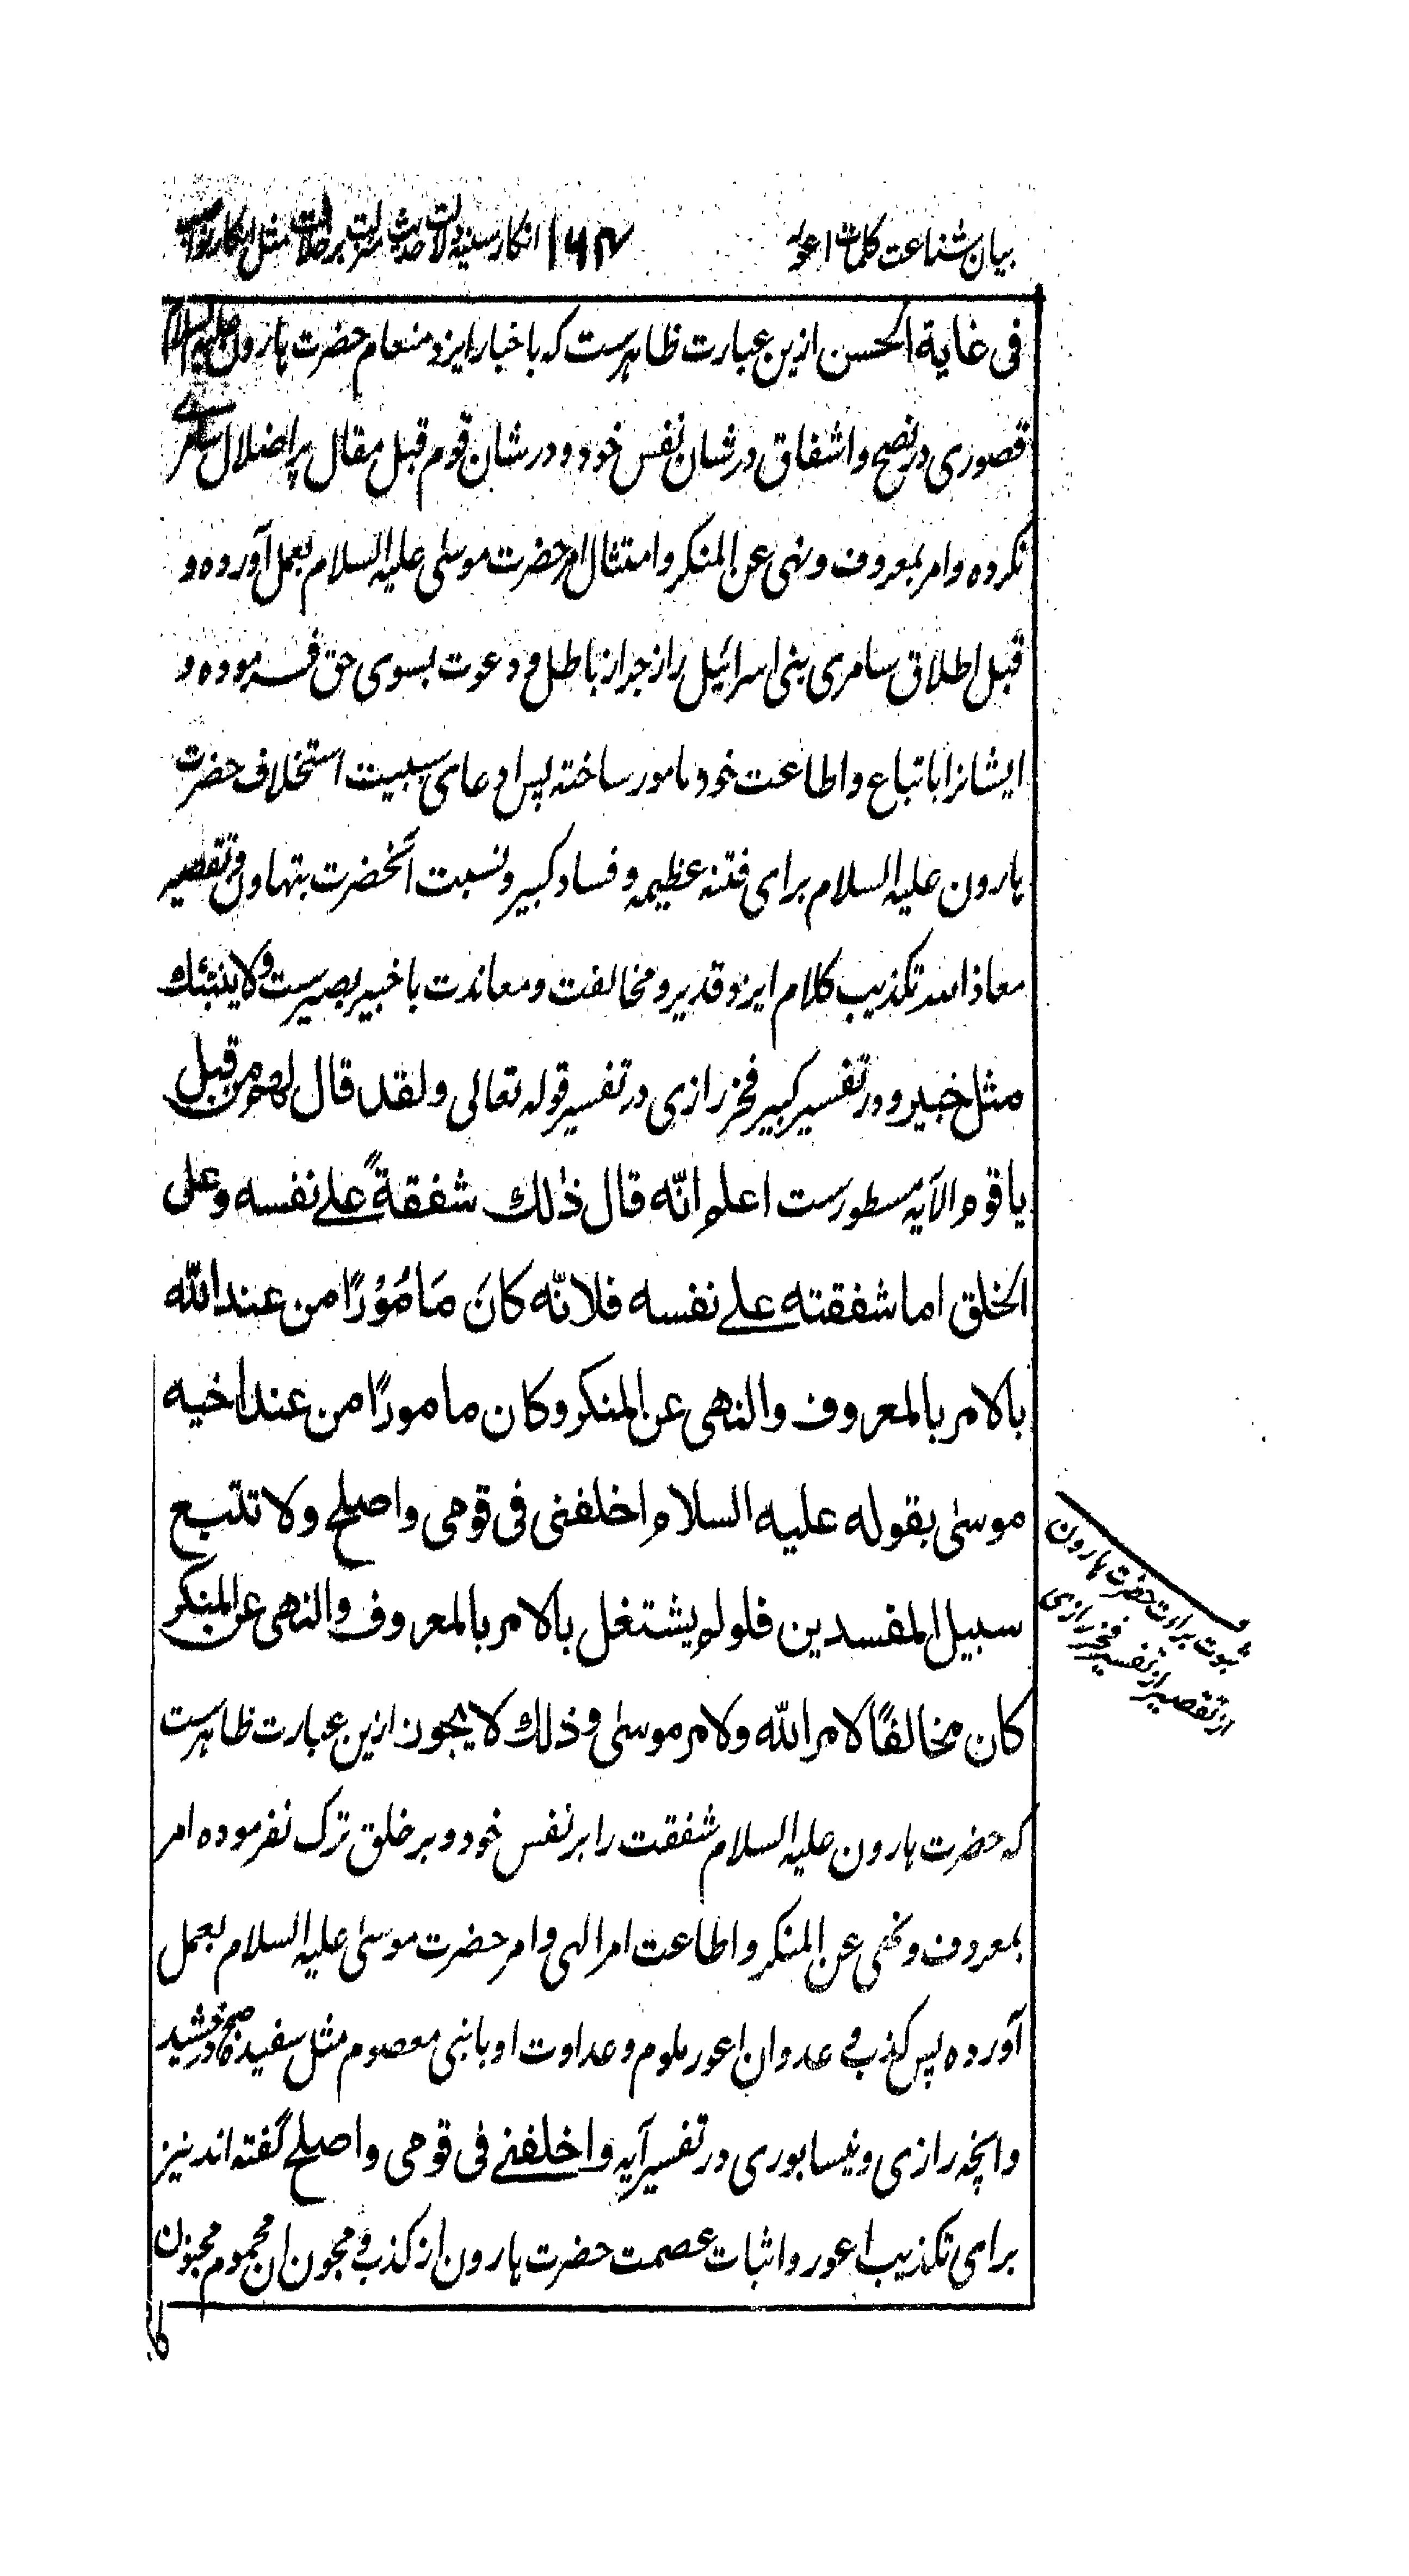 بیان شناعت کلمات اعور
۱۶۴
انکار سنیه دلالت حدیث منزلت بر خلافت مثل انکار
فی غایة الحسن ازین عبارت ظاهرست که باخبار ایزد منعام حضرت هارون علیه السلام
قصوری در نصح و اشفاق در شان نفس خود و در شان قوم قبل مقال پر اضلال سامری
نکرده و امر بمعروف و نهی عن المنکر و امتثال امر حضرت موسی علیه السلام بعمل آورده و
قبل اطلاق سامری بنی اسرائیل را زجر از باطل و دعوت بسوی حق فرموده و
ایشانرا باتباع و اطاعت خود مامور ساخته پس ادعای سببیت استخلاف حضرت
هارون علیه السلام برای فتنه عظیمه و فساد کبیر و نسبت آنحضرت بتهاون و تقصیر
معاذ الله تکذیب کلام ایزد قدیر و مخالفت و معاندت با خبیر بصیرست ولا ینبئك
مثل خبیر و در تفسیر کبیر فخر رازی در تفسیر قوله تعالی ولقد قال لهم من قبل
یا قوم الآیه مسطورست اعلم انّه قال ذٰلك شفقةً علے نفسه وعلی
الخلق اما شفقته علے نفسه فلانّه کانَ مَامُوْرًا من عند اللّٰه
بالامر بالمعروف والنهی عن المنکر وکان مامورًا من عند اخیه
موسیٰ بقوله علیه السلام اخلفنی فی قومی واصلح ولا تتبع
سبیل المفسدین فلو لم یشتغل بالامر بالمعروف والنهی عن المنکر
کان مخالفًا لامر اللّٰه ولامر موسیٰ وذلك لا یجوز ازین عبارت ظاهرست
که حضرت هارون علیه السلام شفقت را بر نفس خود و بر خلق ترک نفرموده امر
بمعروف و نهی عن المنکر و اطاعت امر الهی و امر حضرت موسیٰ علیه السلام بعمل
آورده پس کذب و عدوان اعور ملوم و عداوت او با نبی معصوم مثل سفیده صبح درخشید
و آنچه رازی و نیسابوری در تفسیر آیه واخلفنے فی قومی واصلح گفته اند نیز
برای تکذیب اعور و اثبات عصمت حضرت هارون از کذب و مجون آن مجموم مجنون
ثبوت براءت حضرت هارون
از تقصیر از تفسیر فخر رازی